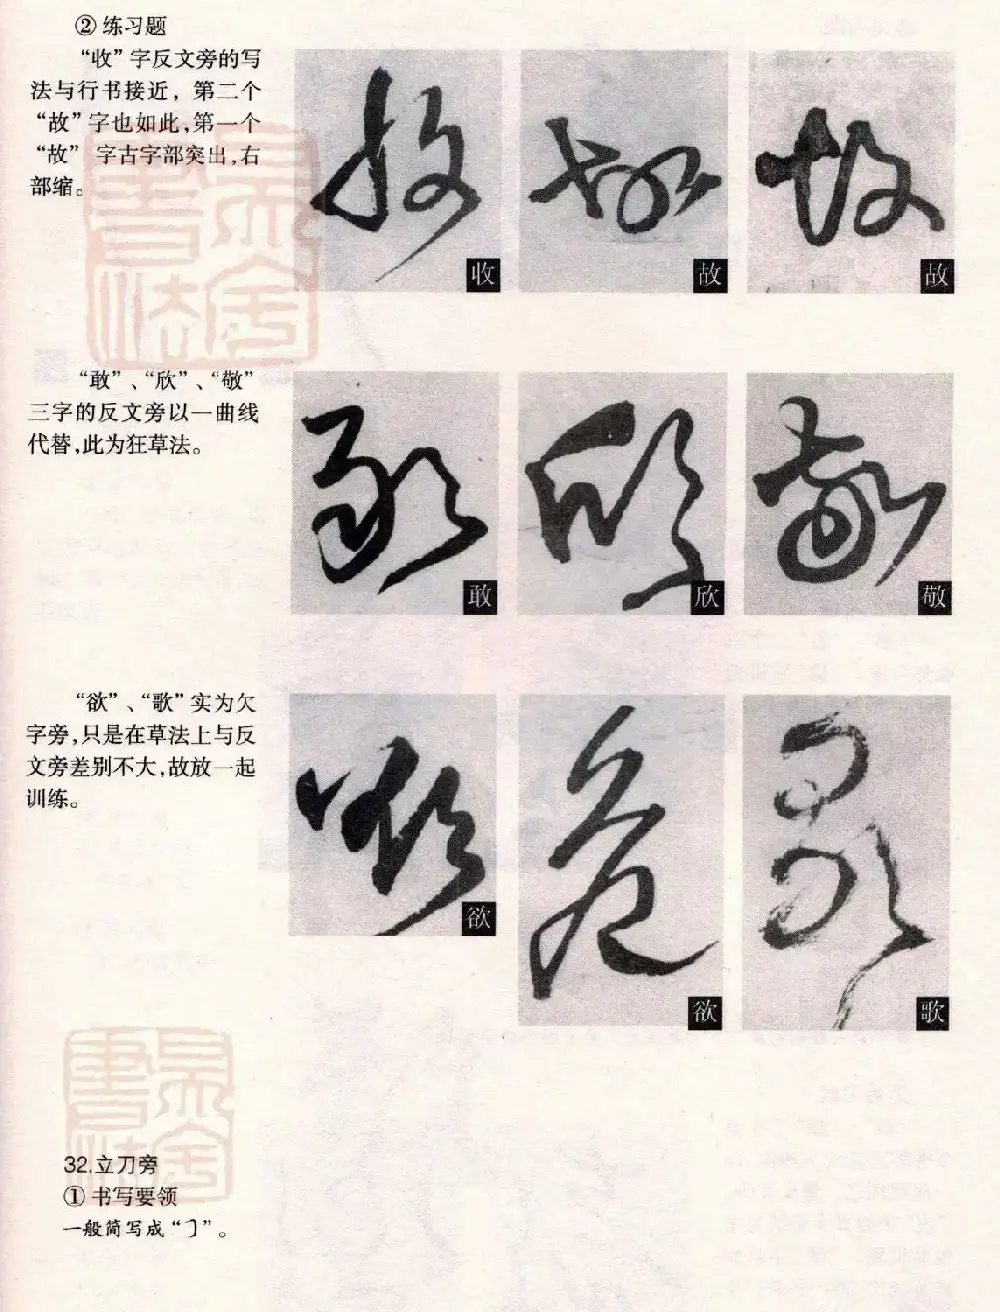 ② 练习题
“收”字反文旁的写
法与行书接近，第二个
“故”字也如此，第一个
“故”字古字部突出，右
部缩。
收
故
故
“敢”、“欣”、“敬”
三字的反文旁以一曲线
代替，此为狂草法。
敢
欣
敬
“欲”、“歌”实为欠
字旁，只是在草法上与反
文旁差别不大，故放一起
训练。
欲
欲
歌
32.立刀旁
① 书写要领
一般简写成“㇆”。